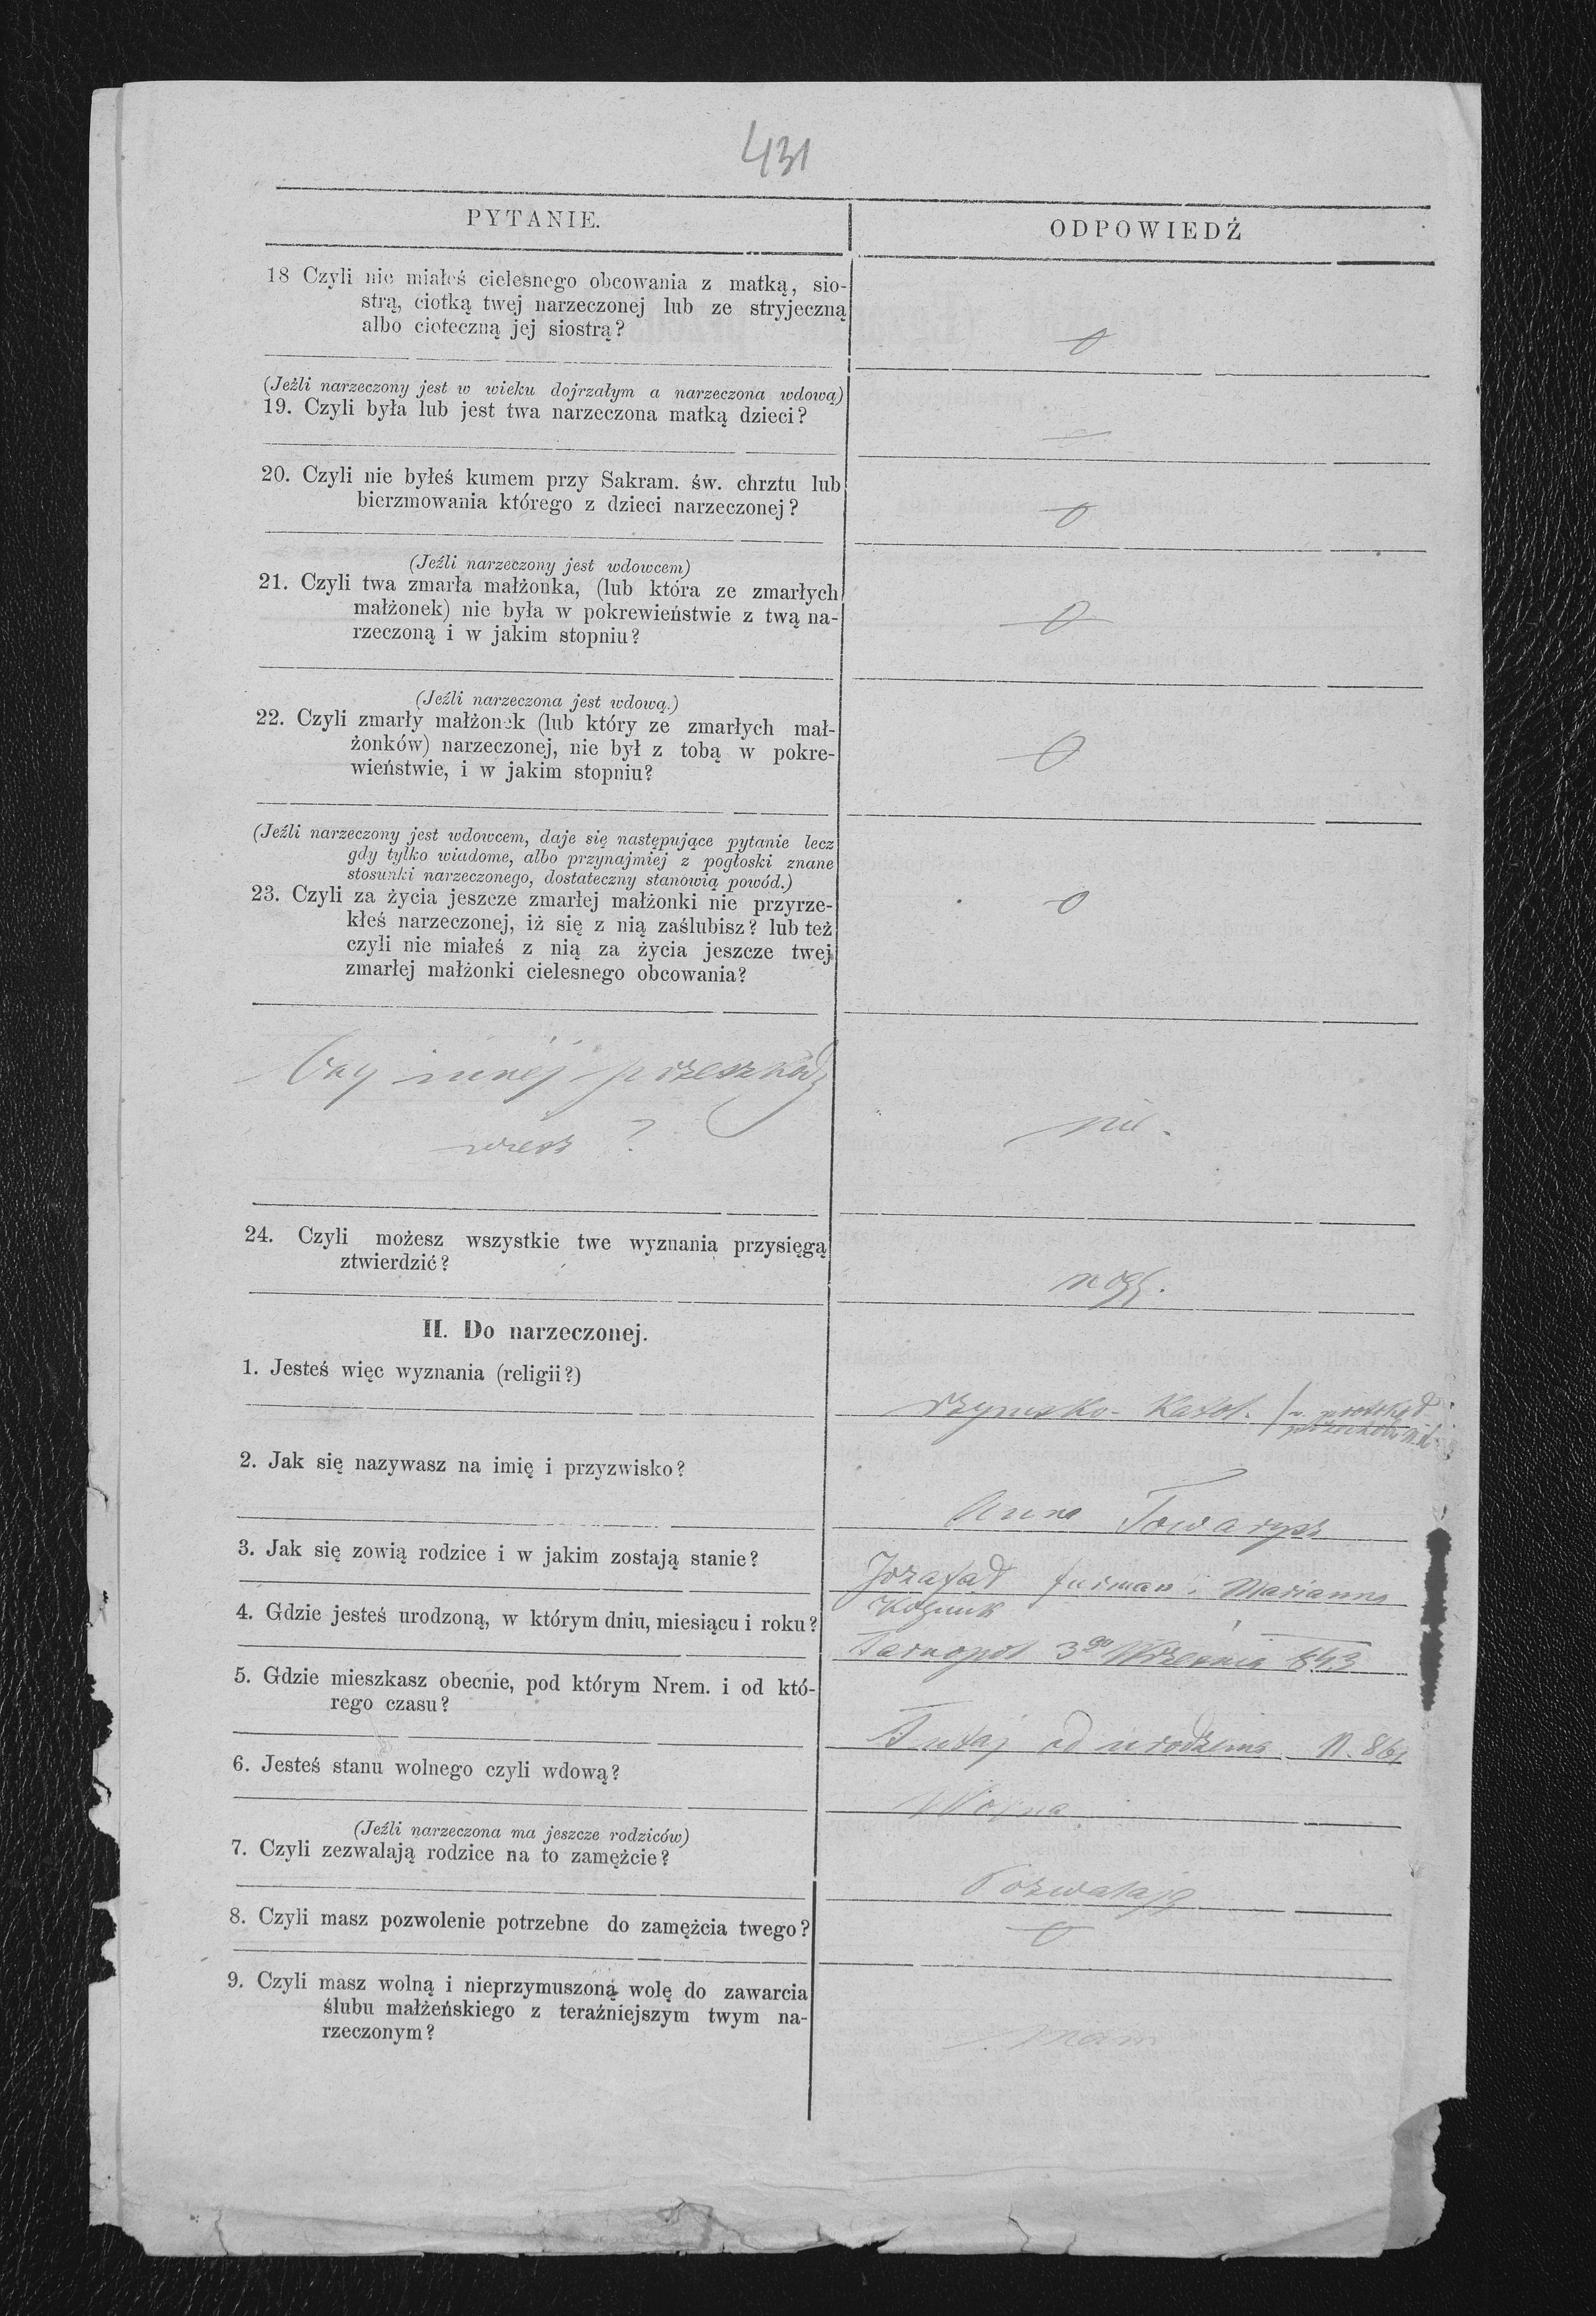 431
PYTANIE.
ODPOWIEDŹ
18 Czyli nie miałeś cielesnego obcowania z matką, sio-
strą, ciotką twej narzeczonej lub ze stryjeczną
albo cioteczną jej siostrą?
(Jeźli narzeczony jest w wieku dojrzałym a narzeczona wdową)
19. Czyli była lub jest twa narzeczona matką dzieci?
20. Czyli nie byłeś kumem przy Sakram. św. chrztu lub
bierzmowania którego z dzieci narzeczonej?
(Jeźli narzeczony jest wdowcem)
21. Czyli twa zmarła małżonka, (lub która ze zmarłych
małżonek) nie była w pokrewieństwie z twą na-
rzeczoną i w jakim stopniu?
(Jeźli narzeczona jest wdową.)
22. Czyli zmarły małżonek (lub który ze zmarłych mał-
żonków) narzeczonej, nie był z tobą w pokre-
wieństwie, i w jakim stopniu?
(Jeźli narzeczony jest wdowcem, daje się następujące pytanie lecz
gdy tylko wiadome, albo przynajmiej z pogłoski znane
stosunki narzeczonego, dostateczny stanowią powód.)
23. Czyli za życia jeszcze zmarłej małżonki nie przyrze-
kłeś narzeczonej, iż się z nią zaślubisz? lub też
czyli nie miałeś z nią za życia jeszcze twej
zmarłej małżonki cielesnego obcowania?
Czy innej przeszkody
wiesz?
nie.
24. Czyli możesz wszystkie twe wyznania przysięgą
ztwierdzić?
mogę.
II. Do narzeczonej.
1. Jesteś więc wyznania (religii?)
rzymsko-katol.
2. Jak się nazywasz na imię i przyzwisko?
Anna Towarysz
3. Jak się zowią rodzice i w jakim zostają stanie?
Jozafad furman i Marianna
4. Gdzie jesteś urodzoną, w którym dniu, miesiącu i roku?
Tarnopol 3go Września 843
5. Gdzie mieszkasz obecnie, pod którym Nrem. i od któ-
rego czasu?
Tutaj od urodzenia N. 861
6. Jesteś stanu wolnego czyli wdową?
Wolna
(Jeźli narzeczona ma jeszcze rodziców)
7. Czyli zezwalają rodzice na to zamężcie?
Pozwalają
8. Czyli masz pozwolenie potrzebne do zamężcia twego?
9. Czyli masz wolną i nieprzymuszoną wolę do zawarcia
ślubu małżeńskiego z teraźniejszym twym na-
rzeczonym?
mam